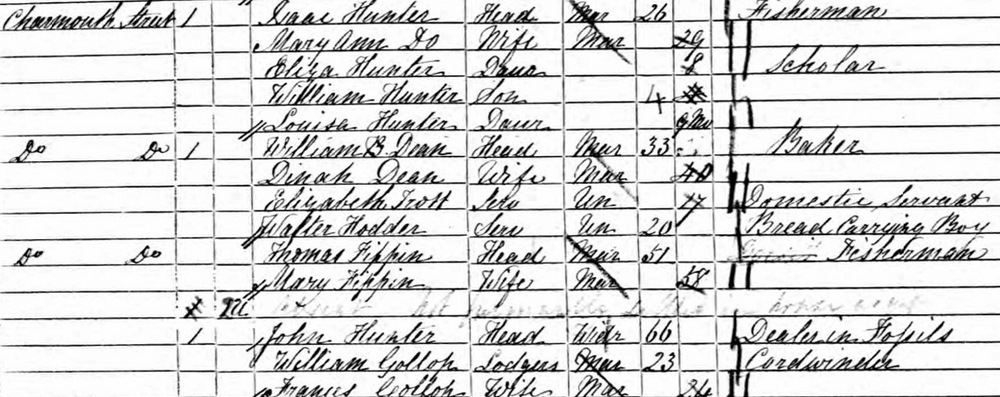 Charmouth Street 1 Isaac Hunter Head Mar 26 Fisherman
Mary Ann Do Wife Mar 29
Eliza Hunter Daur 8 Scholar
William Hunter Son 4
Louisa Hunter Daur 9 Mo
Do Do 1 William B Dean Head Mar 33 Baker
Dinah Dean Wife Mar 40
Elizabeth Trott Serv Un 17 Domestic Servant
Walter Hodder Serv Un 20 Bread Carrying Boy
Do Do Thomas Fippin Head Mar 51 Fisherman
Mary Fippin Wife Mar 58
1 John Hunter Head Widr 66 Dealer in Fossils
William Gollop Lodgers Mar 23 Cordwinder
Frances Gollop Wife Mar 24